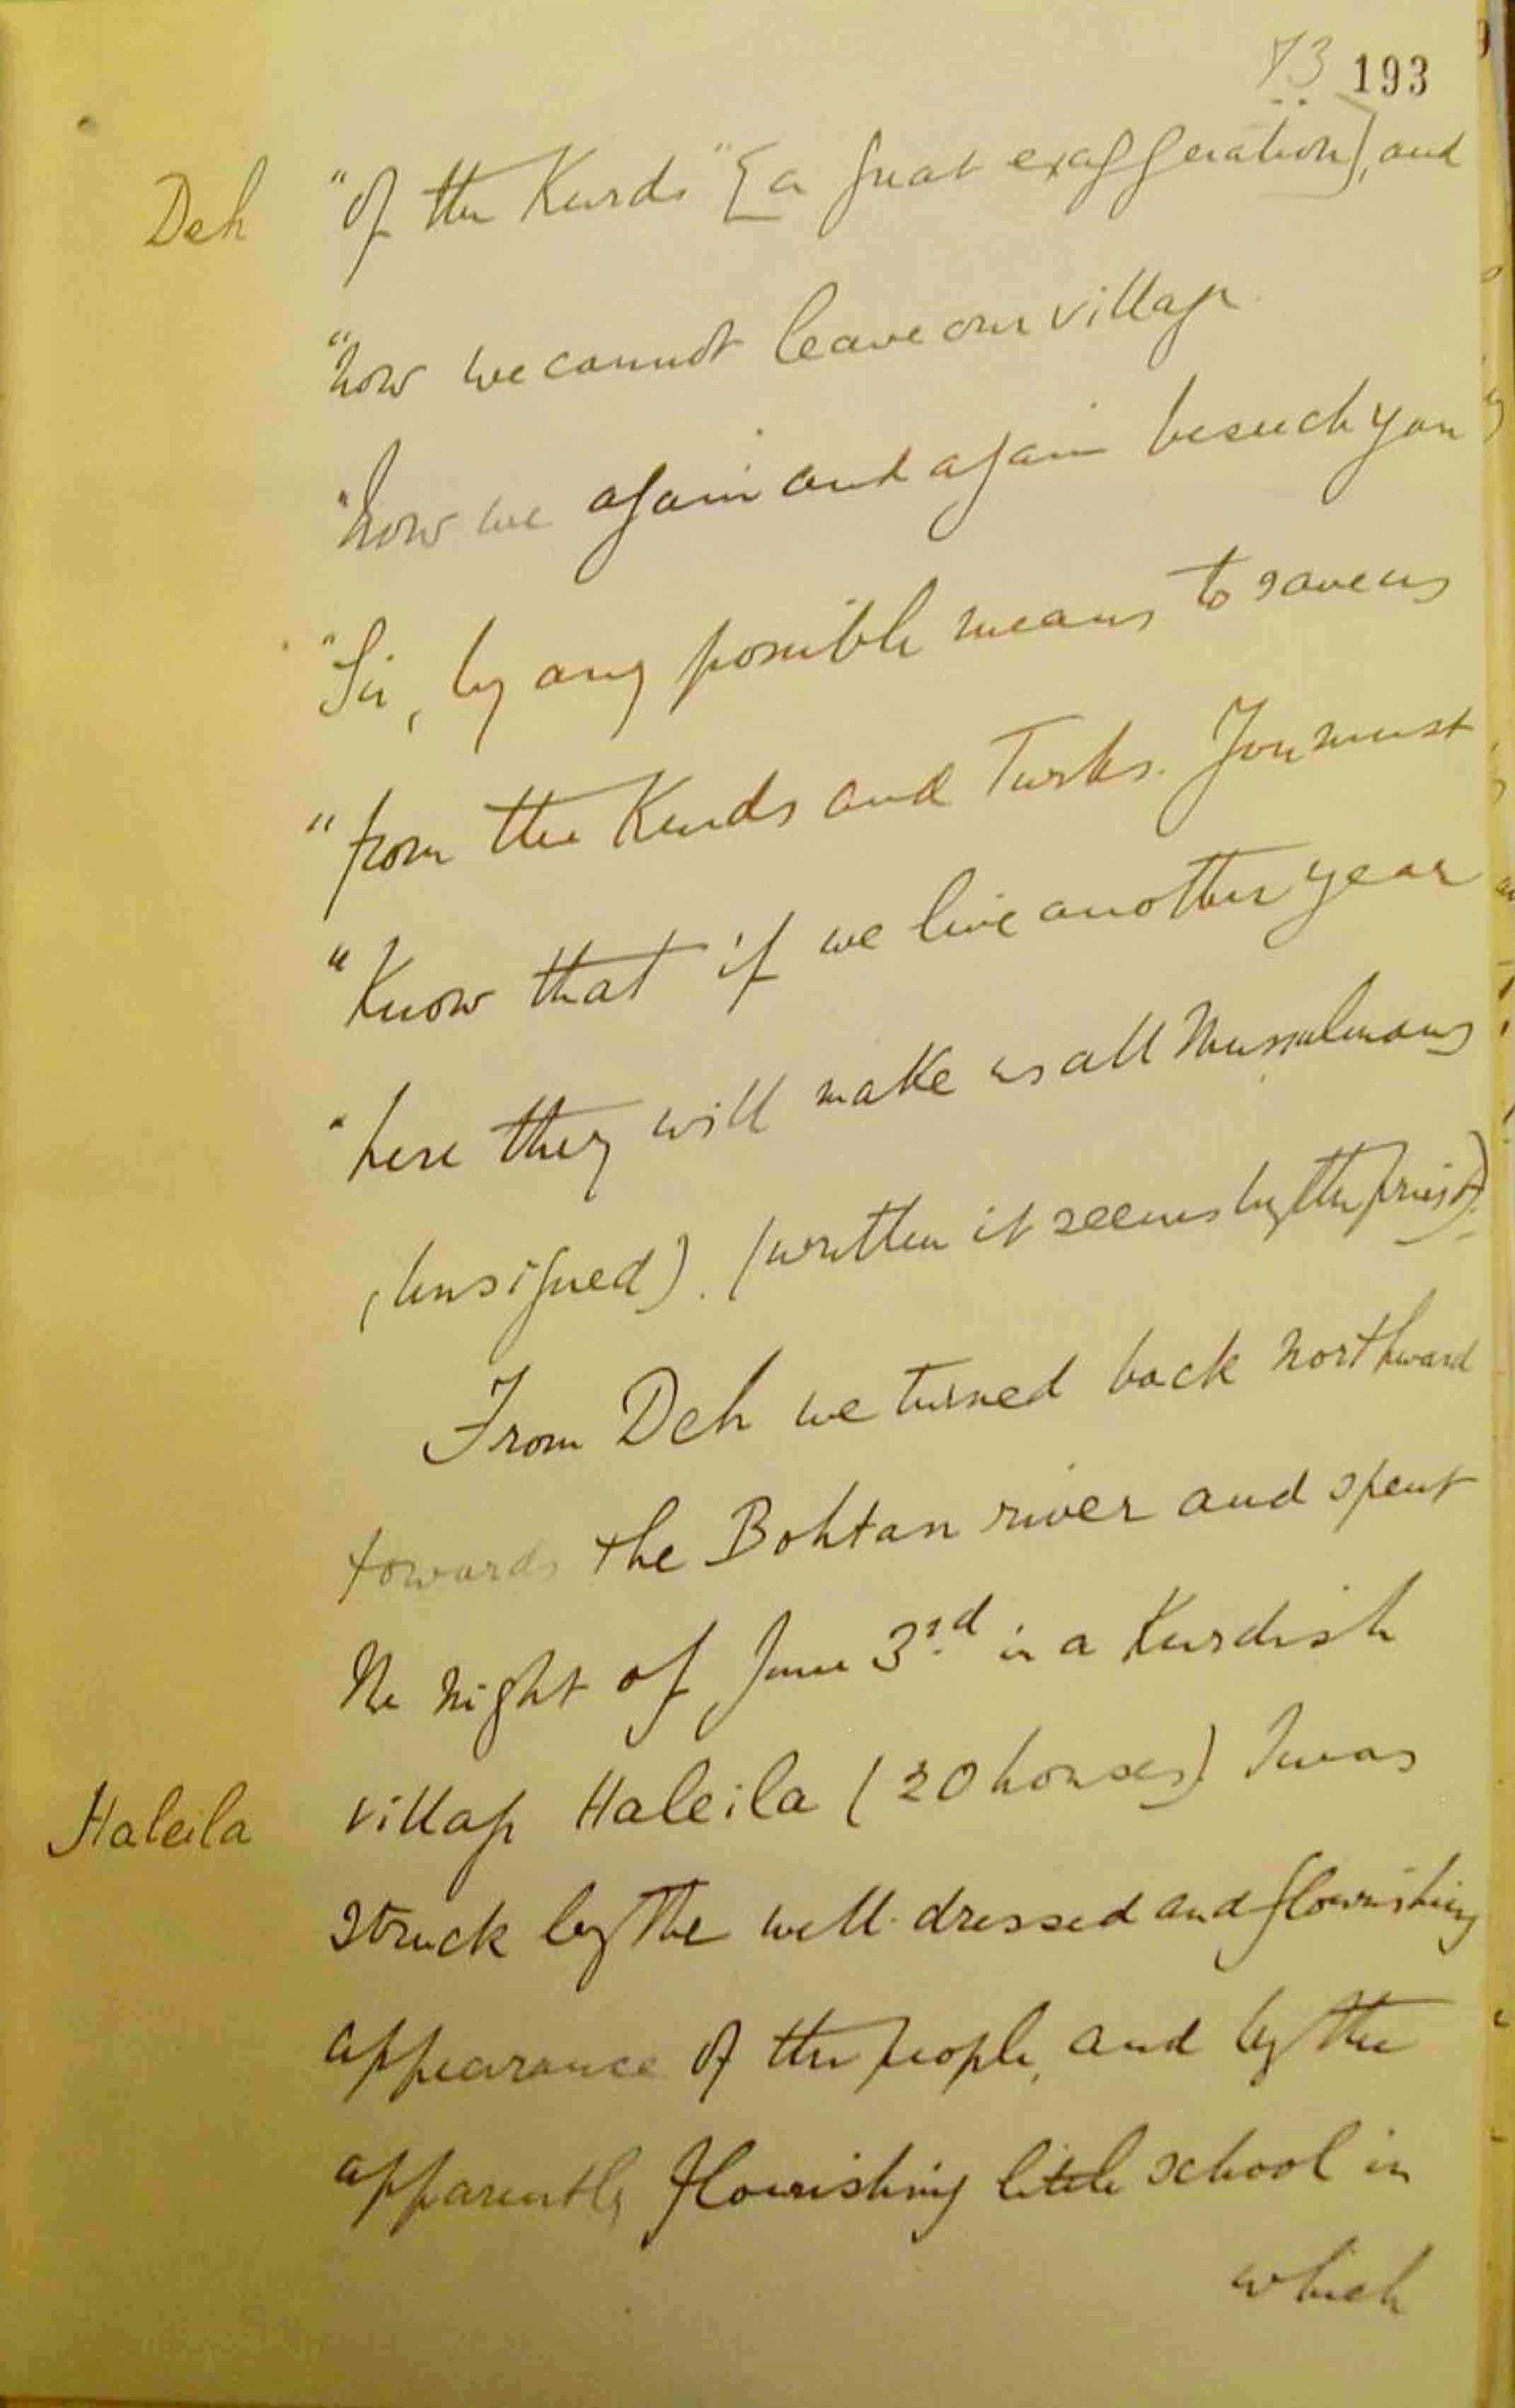 73 193
Deh "of the Kurds" [a great exaggeration], and
"now we cannot leave our village.
"Now we again and again beseech you
"Sir, by any possible means to save us
"from the Kurds and Turks. You must
"Know that if we live another year
"here they will make us all Mussulmans
(Unsigned). (written it seems by the priest).
From Deh we turned back northward
towards the Bohtan river and spent
the night of June 3rd in a Kurdish
Haleila village Haleila (20 houses) I was
struck by the well-dressed and flourishing
appearance of the people, and by the
apparently flourishing little school in
which